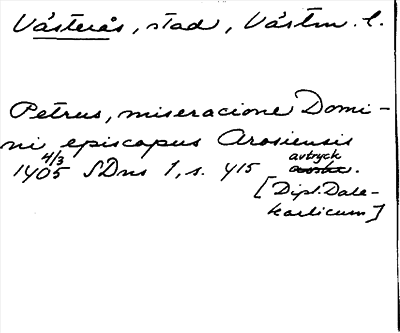 Västerås, stad, Västm. l.
Petrus, miseracione Domi-
ni episcopus Arosiensis
4/3
1405 SDns 1, s. 415 avtryck.
[Dipl. Dale-
karlicum]